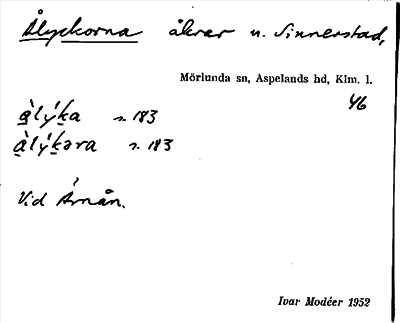 Ålyckorna åkrar u. Sinnerstad,
Mörlunda sn, Aspelands hd, Klm. l.
46
à̱lýḵa s. 183
à̱lýḵəra s. 183
Vid Årnån.
Ivar Modéer 1952